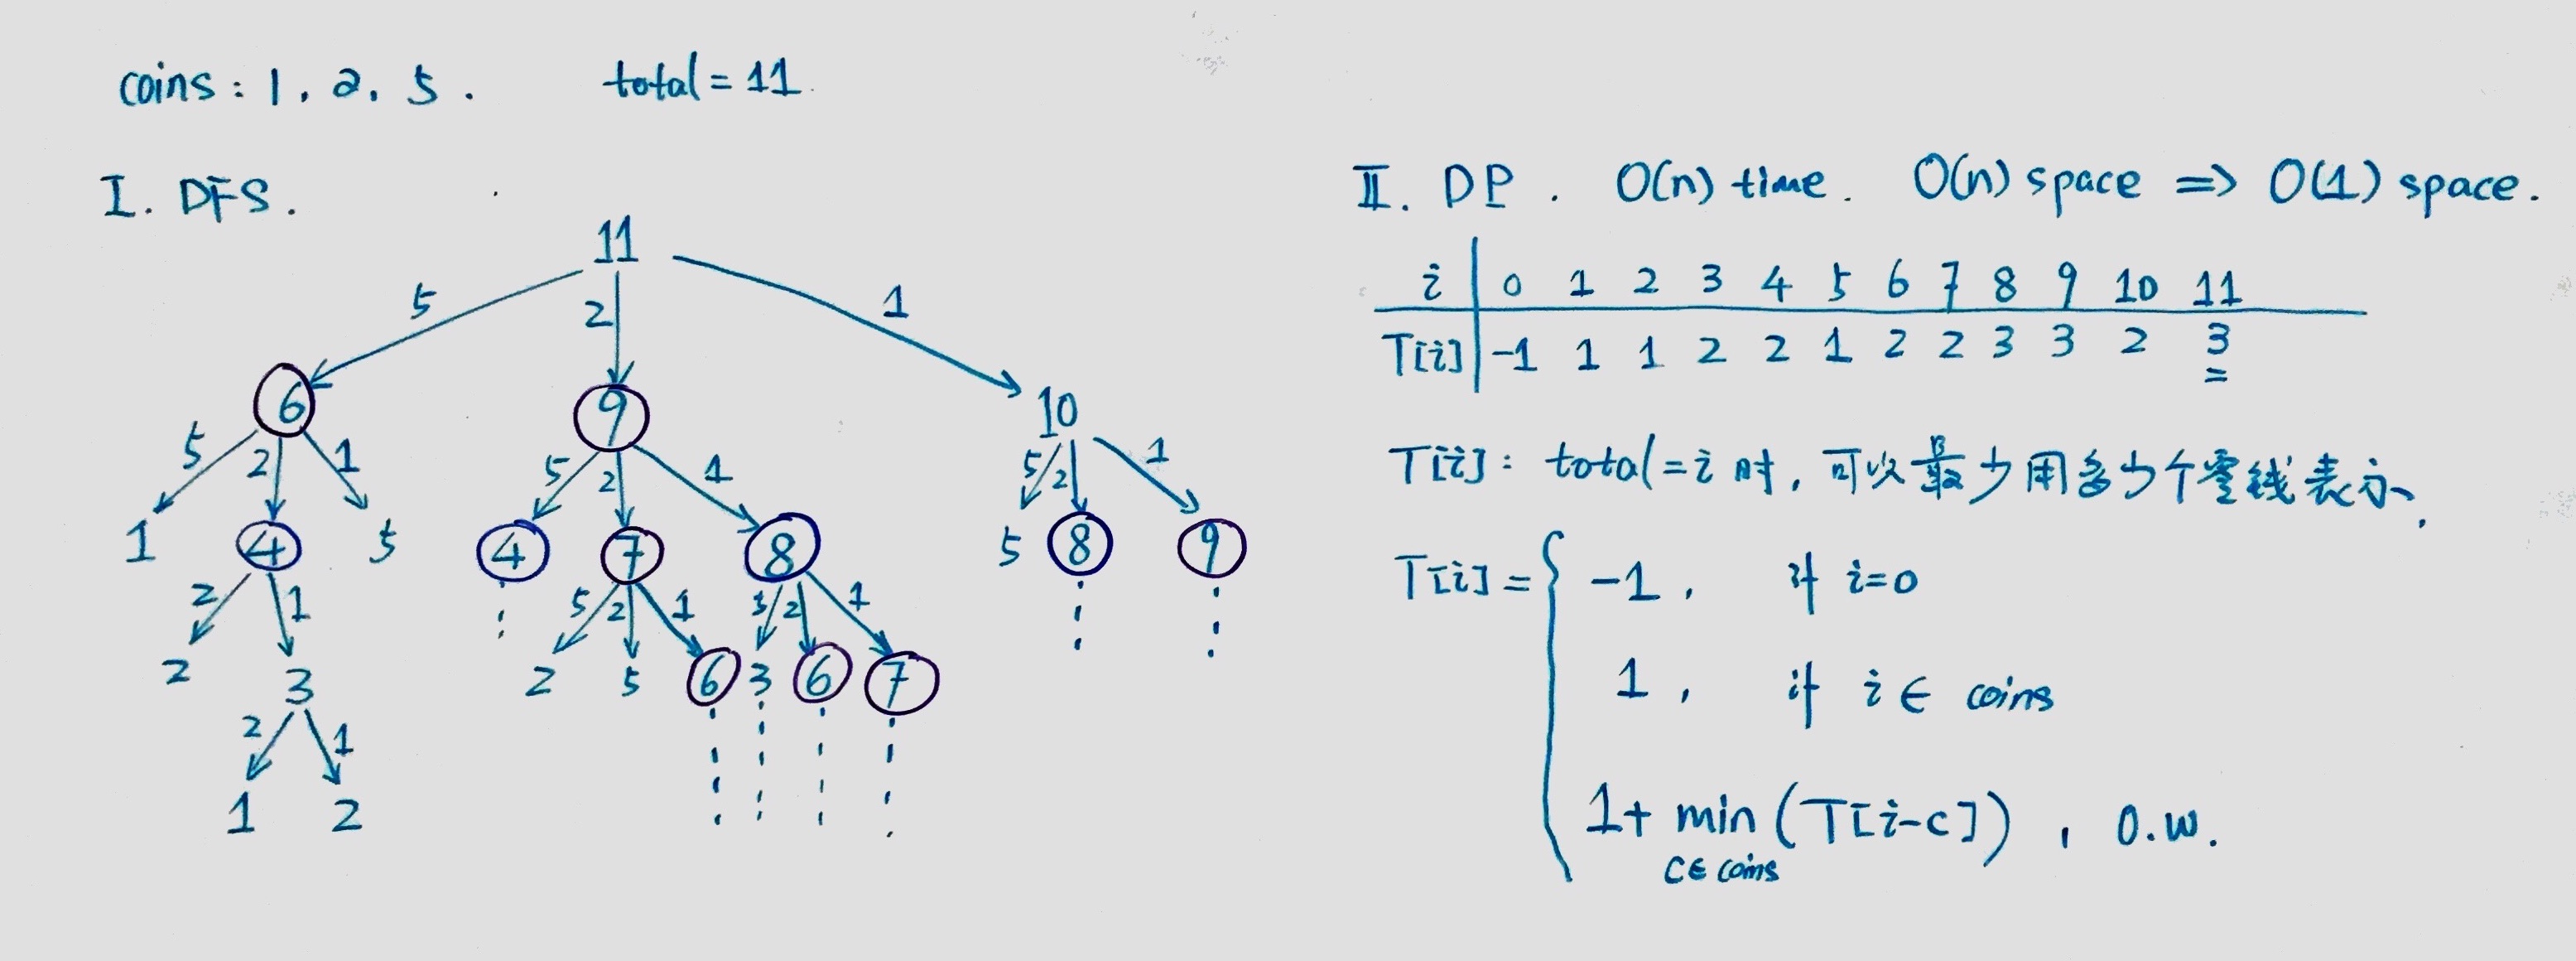 coins: 1, 2, 5. total = 11.
I. DFS.
11
5 2 1
6 9 10
5 2 1 5 2 1 5 2 1
1 4 5 4 7 8 5 8 9
2 1 5 2 1 5 2 1
2 3 2 5 6 3 6 7
2 1
1 2
II. DP. O(n) time. O(n) space => O(1) space.
i 0 1 2 3 4 5 6 7 8 9 10 11
T[i] -1 1 1 2 2 1 2 2 3 3 2 3
T[i]: total = i 时, 可以最少用多少个零钱表示.
T[i] = { -1, if i=0
1, if i ∈ coins
1+ min (T[i-c]), o.w.
c∈coins